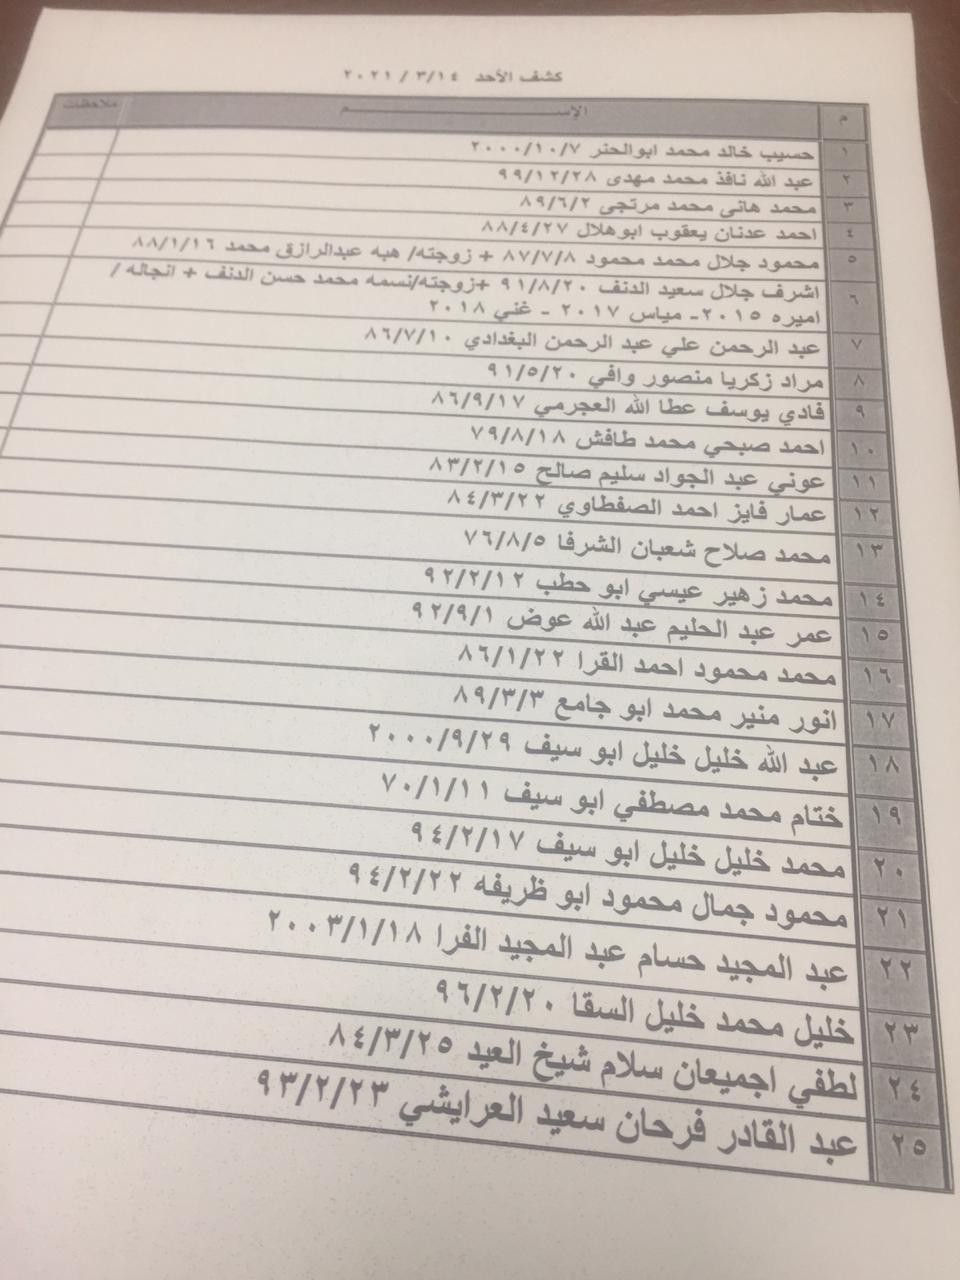 كشف الأحد ٢٠٢١ / ٣/١٤
م الإســـــــــــــم ملاحظات
١ حسيب خالد محمد ابوالحنر ٢٠٠٠/١٠/٧
٢ عبد الله نافذ محمد مهدى ٩٩/١٢/٢٨
٣ محمد هانى محمد مرتجى ٨٩/٦/٢
٤ احمد عدنان يعقوب ابوهلال ٨٨/٤/٢٧
٥ محمود جلال محمد محمود ٨٧/٧/٨ + زوجته/ هبه عبدالرازق محمد ٨٨/١/١٦
٦ اشرف جلال سعيد الدنف ٩١/٨/٢٠ +زوجته/نسمه محمد حسن الدنف + انجاله /
اميره ٢٠١٥- مياس ٢٠١٧ - غني ٢٠١٨
٧ عبد الرحمن علي عبد الرحمن البغدادي ٨٦/٧/١٠
٨ مراد زكريا منصور وافي ٩١/٥/٢٠
٩ فادي يوسف عطا الله العجرمي ٨٦/٩/١٧
١٠ احمد صبحي محمد طافش ٧٩/٨/١٨
١١ عوني عبد الجواد سليم صالح ٨٣/٢/١٥
١٢ عمار فايز احمد الصفطاوي ٨٤/٣/٢٢
١٣ محمد صلاح شعبان الشرفا ٧٦/٨/٥
١٤ محمد زهير عيسي ابو حطب ٩٢/٢/١٢
١٥ عمر عبد الحليم عبد الله عوض ٩٢/٩/١
١٦ محمد محمود احمد القرا ٨٦/١/٢٢
١٧ انور منير محمد ابو جامع ٨٩/٣/٣
١٨ عبد الله خليل خليل ابو سيف ٢٠٠٠/٩/٢٩
١٩ ختام محمد مصطفي ابو سيف ٧٠/١/١١
٢٠ محمد خليل خليل ابو سيف ٩٤/٢/١٧
٢١ محمود جمال محمود ابو ظريفه ٩٤/٢/٢٢
٢٢ عبد المجيد حسام عبد المجيد الفرا ٢٠٠٣/١/١٨
٢٣ خليل محمد خليل السقا ٩٦/٢/٢٠
٢٤ لطفي اجميعان سلام شيخ العيد ٨٤/٣/٢٥
٢٥ عبد القادر فرحان سعيد العرايشي ٩٣/٢/٢٣